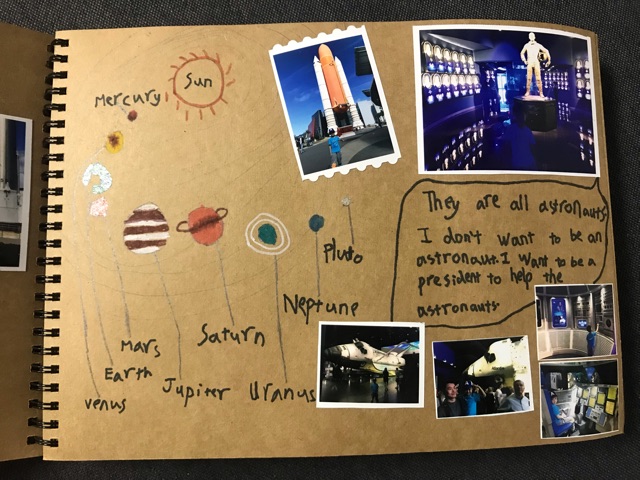 Sun
Mercury
Pluto
Neptune
Saturn
Mars
Earth
Jupiter
Uranus
Venus
They are all astronauts
I don't want to be an
astronaut. I want to be a
president to help the
astronauts.